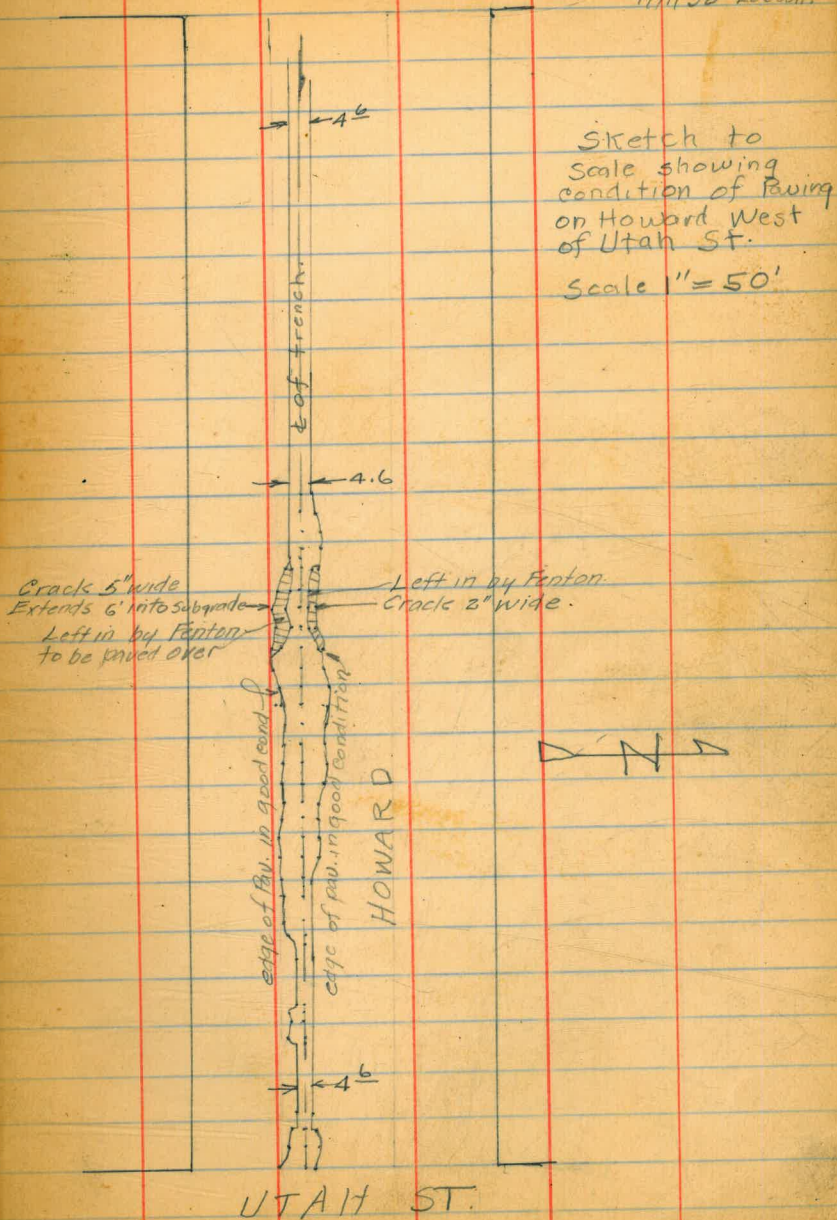 4 6
Sketch to
Scale showing
condition of Paving
on Howard West
of Utah St.
Scale 1" = 50'
℄ of trench.
4.6
Crack 5" wide
Extends 6' into subgrade
Left in by Fenton
to be paved over
Left in by Fenton.
Crack 2" wide.
edge of Pav. in good cond.
edge of pav. in good condition
HOWARD
N
4 6
UTAH ST.